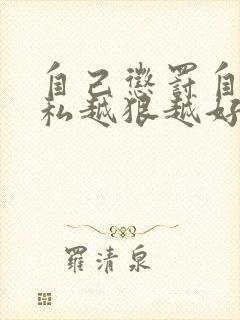 自己懲罰自
私越狠越好
羅清泉